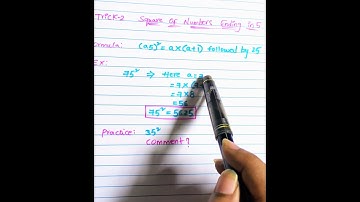 Trick-2 Square Of Numbers Ending in 5
Formula: (a5)² = a×(a+1) followed by 25
Ex:
75² ⇒ Here a=7
= 7×(
= 7×8
= 56
75² = 5625
Practice: 35²
Comment?